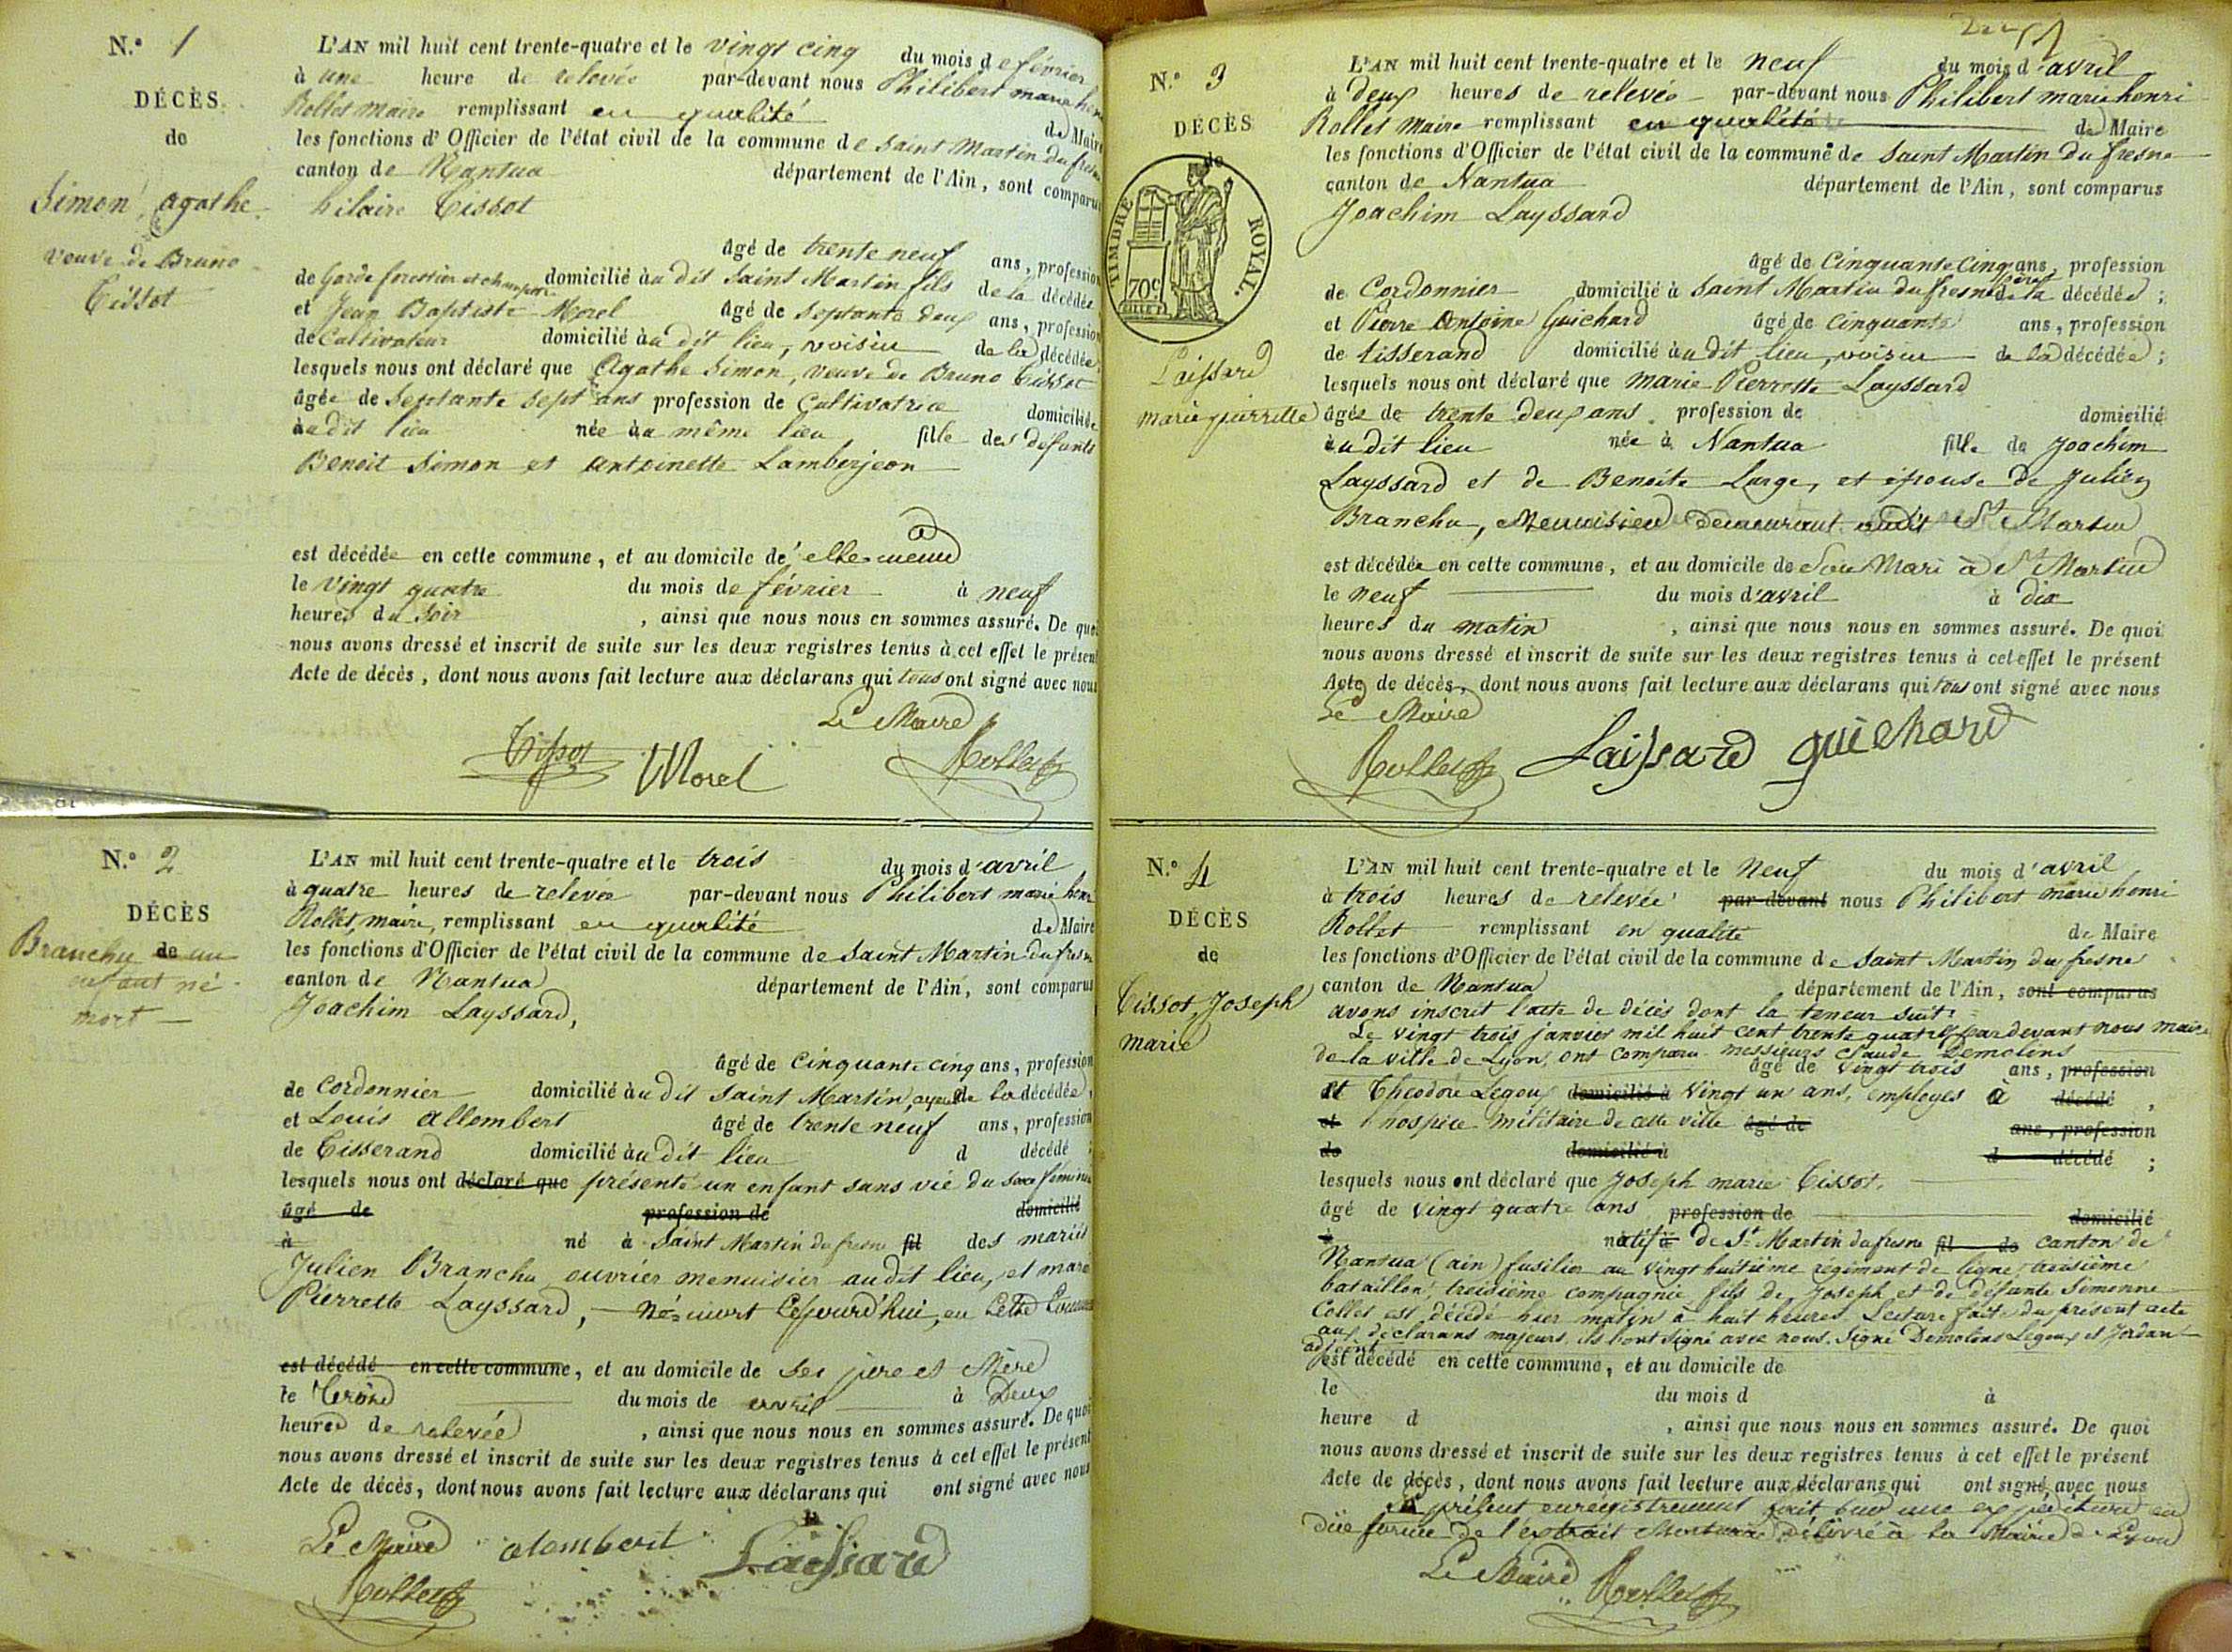 N.º 1
DÉCÈS
de
Simon, agathe
veuve de Bruno
Tissot
L'AN mil huit cent trente-quatre et le vingt cinq du mois de février
à une heure de relevée par-devant nous Philibert marie henri
Rollet maire remplissant en qualité de Maire
les fonctions d'Officier de l'état civil de la commune de Saint Martin du fresne
canton de Nantua département de l'Ain, sont comparus
hilaire Tissot
âgé de trente neuf ans, profession
de Garde forestier et champêtre domicilié audit Saint Martin fils de la décédée
et Jean Baptiste Morel âgé de septante deux ans, profession
de Cultivateur domicilié audit lieu, voisin de la décédée
lesquels nous ont déclaré que Agathe Simon, veuve de Bruno Tissot
âgée de septante sept ans profession de Cultivatrice domiciliée
audit lieu née au même lieu, fille des defunts
Benoit Simon et Antoinette Lamberjeon
est décédée en cette commune, et au domicile de elle même
le vingt quatre du mois de février à neuf
heures du soir, ainsi que nous nous en sommes assuré. De quoi
nous avons dressé et inscrit de suite sur les deux registres tenus à cet effet le présent
Acte de décès, dont nous avons fait lecture aux déclarans qui tous ont signé avec nous
Le Maire
Tissot Morel Rollet
N.º 2
DÉCÈS
Branchu de un
enfant né
mort
L'AN mil huit cent trente-quatre et le trois du mois d'avril
à quatre heures de relevée par-devant nous Philibert marie henri
Rollet, maire, remplissant en qualité de Maire
les fonctions d'Officier de l'état civil de la commune de Saint Martin du fresne
canton de Nantua département de l'Ain, sont comparus
Joachim Layssard,
âgé de Cinquante cinq ans, profession
de Cordonnier domicilié audit Saint Martin, ayeul de la décédée,
et Louis Allombert âgé de trente neuf ans, profession
de Tisserand domicilié audit lieu d décédé ;
lesquels nous ont déclaré que présenté un enfant sans vie du sexe féminin
âgé de profession de domicilié
à né à Saint Martin du fresne fil des mariés
Julien Branchu ouvrier menuisier audit lieu, et marie
Pierrette Layssard, né mort cejourd'hui, en cette Commune
est décédé en cette commune, et au domicile de ses père et Mère
le Trois du mois de avril à Deux
heures de relevée, ainsi que nous nous en sommes assuré. De quoi
nous avons dressé et inscrit de suite sur les deux registres tenus à cet effet le présent
Acte de décès, dont nous avons fait lecture aux déclarans qui ont signé avec nous
Le Maire alombert Laissard
Rollet
N.º 3
DÉCÈS
de
TIMBRE ROYAL.
70c
Laissard
marie pierrette
L'AN mil huit cent trente-quatre et le neuf du mois d'avril
à deux heures de relevée par-devant nous Philibert marie henri
Rollet Maire remplissant en qualité de Maire
les fonctions d'Officier de l'état civil de la commune de Saint Martin du fresne
canton de Nantua département de l'Ain, sont comparus
Joachim Layssard
âgé de Cinquante Cinq ans, profession
de Cordonnier domicilié à Saint Martin du fresne père de la décédée ;
et Pierre Antoine Guichard âgé de cinquante ans, profession
de tisserand domicilié audit lieu, voisin de la décédée ;
lesquels nous ont déclaré que Marie Pierrette Layssard
âgée de trente deux ans profession de domicilié
audit lieu née à Nantua fille de Joachim
Layssard et de Benoite Large, et épouse de Julien
Branchu, Menuisier demeurant audit St Martin
est décédée en cette commune, et au domicile de Son Mari à St Martin
le neuf du mois d'avril à dix
heures du matin, ainsi que nous nous en sommes assuré. De quoi
nous avons dressé et inscrit de suite sur les deux registres tenus à cet effet le présent
Acte de décès, dont nous avons fait lecture aux déclarans qui tous ont signé avec nous
Le Maire
Rollet Laissard guichard
N.º 4
DÉCÈS
de
Tissot, Joseph
Marie
L'AN mil huit cent trente-quatre et le Neuf du mois d'avril
à trois heures de relevée par-devant nous Philibert marie henri
Rollet remplissant en qualité de Maire
les fonctions d'Officier de l'état civil de la commune de Saint Martin du fresne
canton de Nantua département de l'Ain, sont comparus
avons inscrit l'acte de décès dont la teneur suit :
Le vingt trois janvier mil huit cent trente quatre, pardevant nous maire
de la ville de Lyon, ont comparu messieurs Claude Demolins
âgé de vingt trois ans, profession
et Théodore Legoux domicilié à vingt un ans, employés à décédé ,
et l'hospice militaire de cette ville âgé de ans, profession
de domicilié à d décédé ;
lesquels nous ont déclaré que Joseph marie Tissot,
âgé de vingt quatre ans profession de domicilié
à natif de St Martin du fresne fil de canton de
Nantua (ain) fusilier au vingt huitième régiment de ligne, troisième
bataillon, troisième compagnie, fils de Joseph et de défunte Simonne
Collet est décédé hier matin à huit heures. Lecture faite du présent acte
aux déclarans majeurs, ils l'ont signé avec nous. Signé Demolins Legoux et Jordan
adjoint
est décédé en cette commune, et au domicile de
le du mois d à
heure d , ainsi que nous nous en sommes assuré. De quoi
nous avons dressé et inscrit de suite sur les deux registres tenus à cet effet le présent
Acte de décès, dont nous avons fait lecture aux déclarans qui ont signé avec nous
Le présent enregistrement fait sur une expédition en
due forme de l'extrait Mortuaire délivré à la Mairie de Lyon
Le Maire Rollet